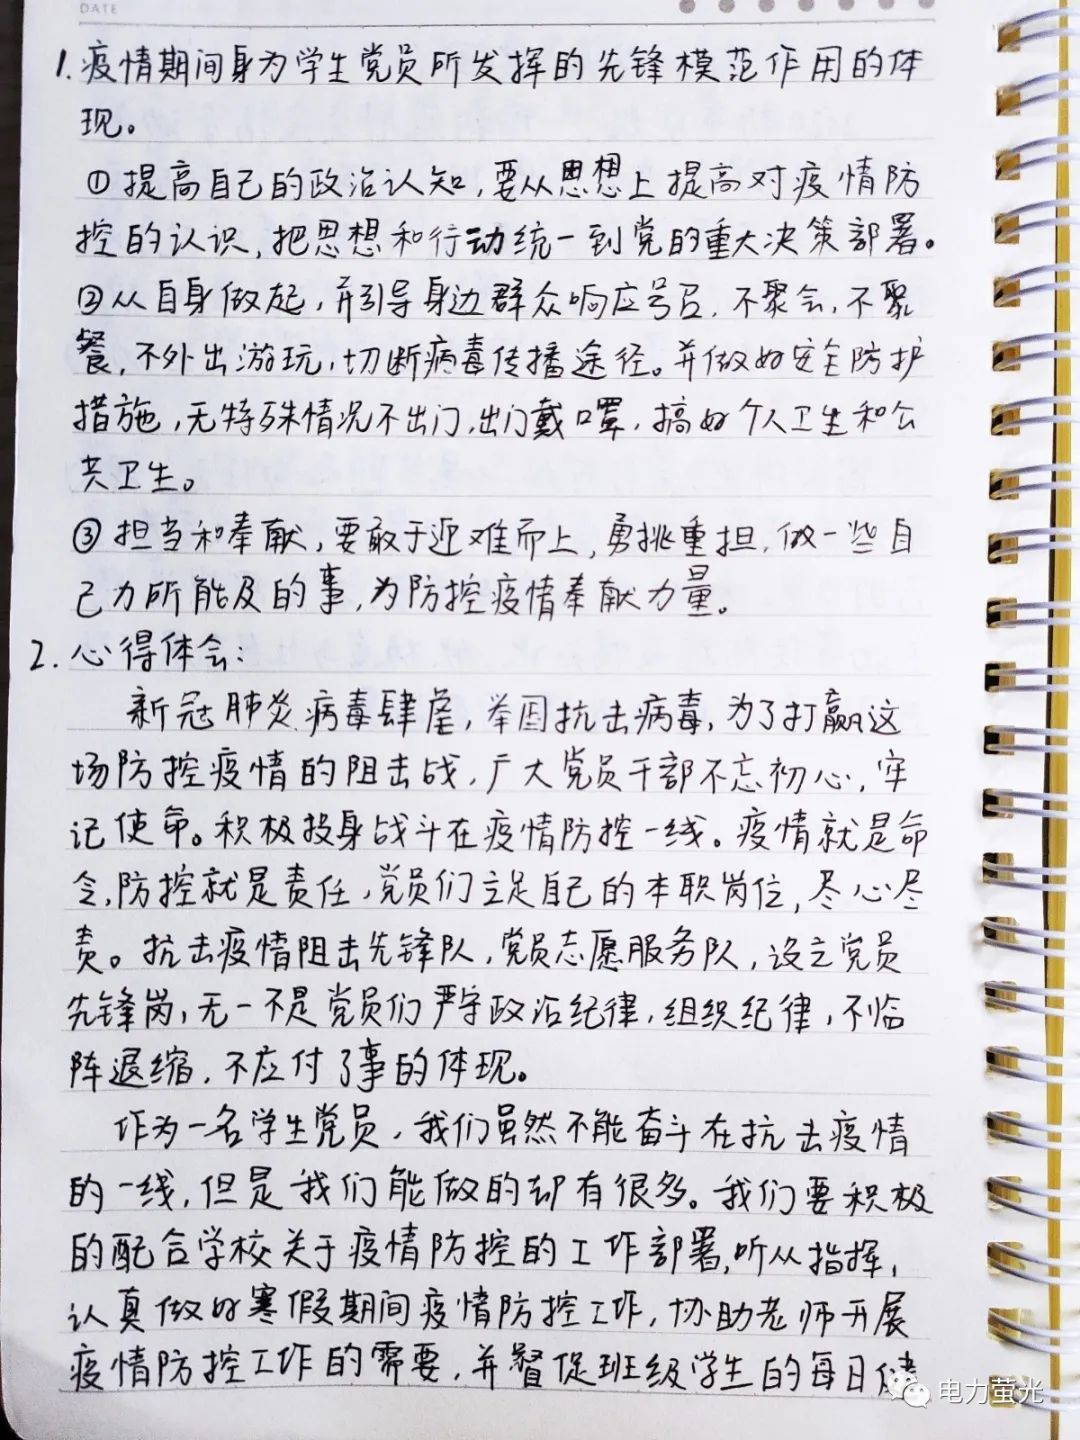 DATE
1. 疫情期间身为学生党员所发挥的先锋模范作用的体
现。
①提高自己的政治认知，要从思想上提高对疫情防
控的认识，把思想和行动统一到党的重大决策部署。
②从自身做起，并引导身边群众响应号召，不聚会，不聚
餐，不外出游玩，切断病毒传播途径。并做好安全防护
措施，无特殊情况不出门，出门戴口罩，搞好个人卫生和公
共卫生。
③担当和奉献，要敢于迎难而上，勇挑重担，做一些自
己力所能及的事，为防控疫情奉献力量。
2. 心得体会：
新冠肺炎病毒肆虐，举国抗击病毒，为了打赢这
场防控疫情的阻击战，广大党员干部不忘初心，牢
记使命。积极投身战斗在疫情防控一线。疫情就是命
令，防控就是责任，党员们立足自己的本职岗位，尽心尽
责。抗击疫情阻击先锋队，党员志愿服务队，设立党员
先锋岗，无一不是党员们严守政治纪律，组织纪律，不临
阵退缩，不应付了事的体现。
作为一名学生党员，我们虽然不能奋斗在抗击疫情
的一线，但是我们能做的却有很多。我们要积极
的配合学校关于疫情防控的工作部署，听从指挥，
认真做好寒假期间疫情防控工作，协助老师开展
疫情防控工作的需要，并督促班级学生的每日健
电力萤光